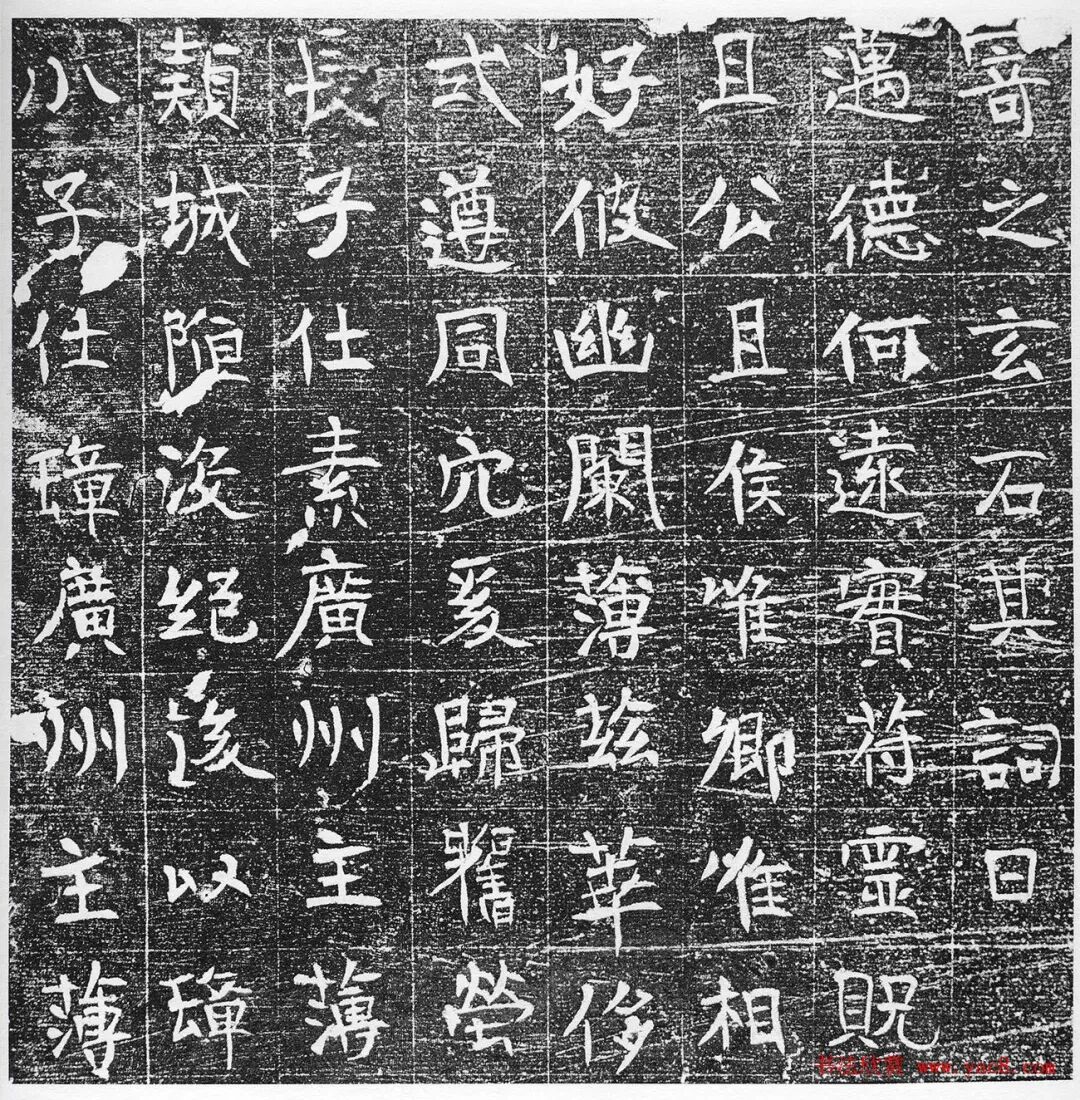 寄之玄石其詞曰
邁德何遠實符靈貺
且公且侯唯卿唯相
好彼幽闌薄茲華侈
式遵同穴爰歸舊塋
長子仕素廣州主薄
頴城隕沒絕後以璋
小子仕璋廣州主薄
书法欣赏 www.yac8.com